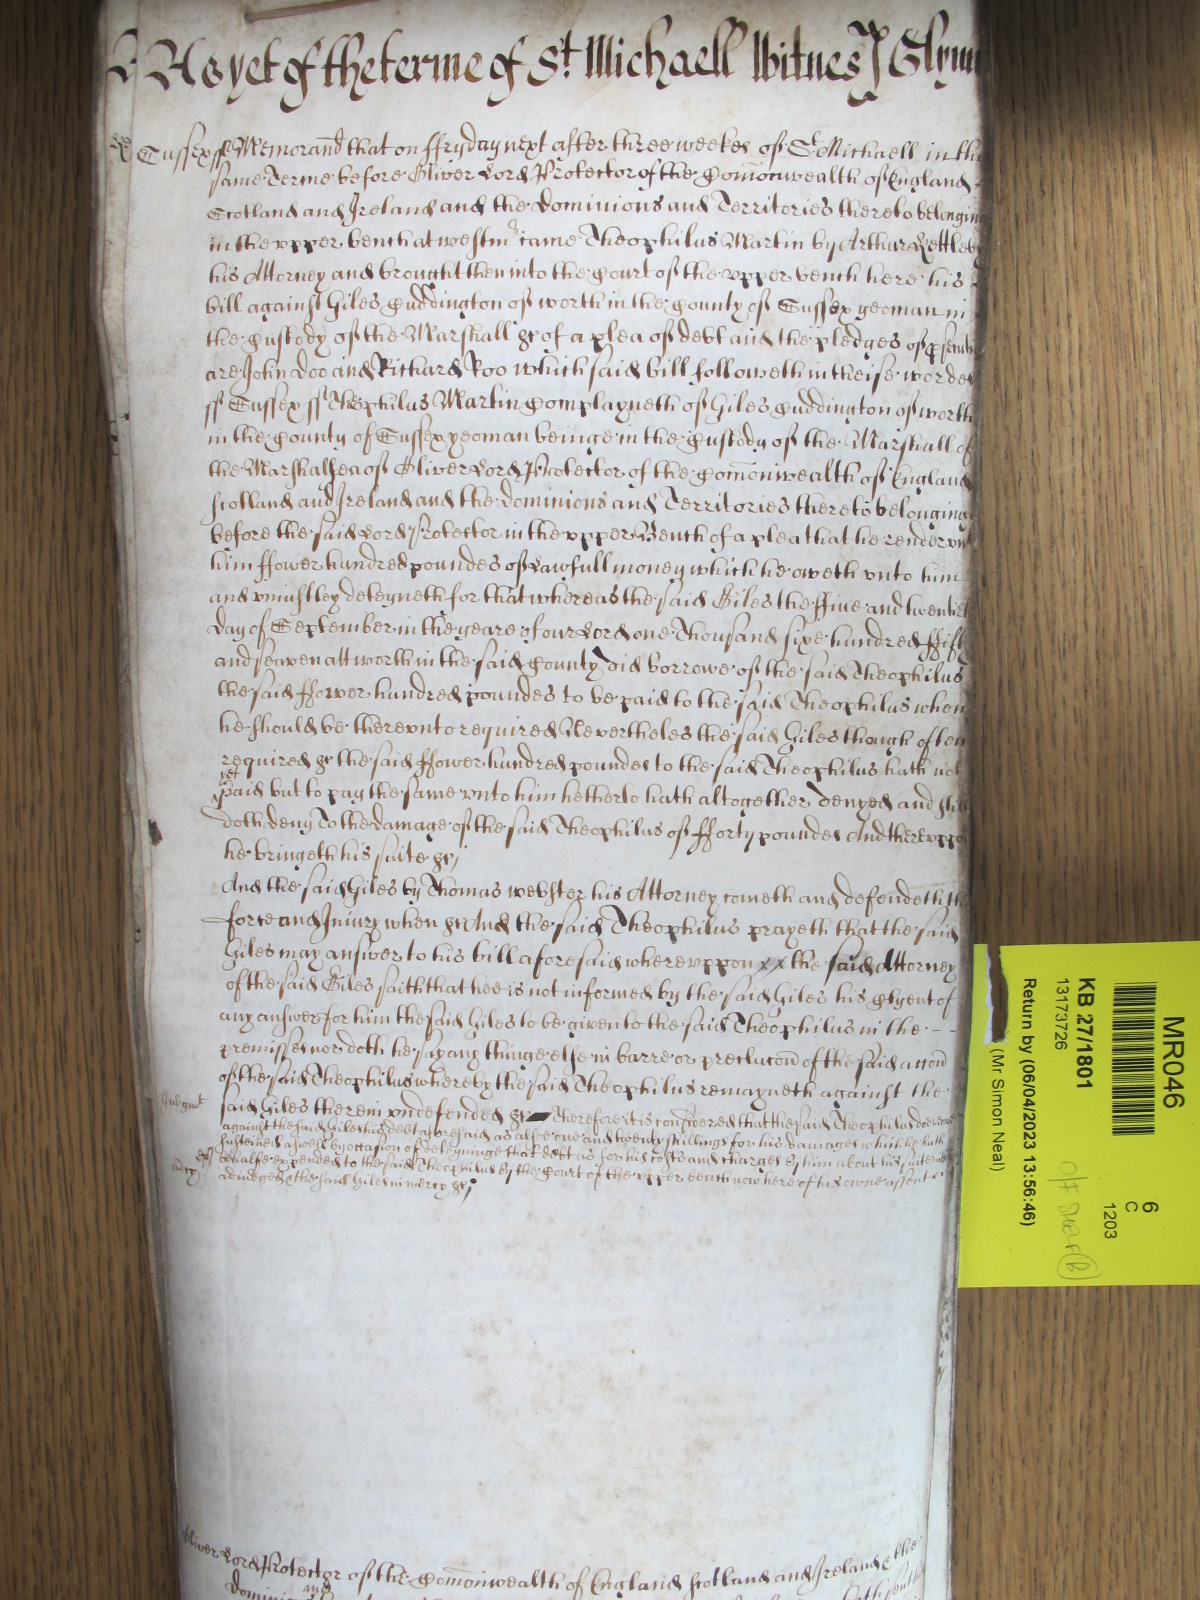 As yet of the terme of St. Michaell Witnes J Glynn
Sussex ss Memorand that on ffryday next after three weekes of St Michaell in the
same Terme before Oliver Lord Protector of the Comonwealth of England
Scotland and Ireland and the Dominions and Territories thereto belonging
in the vpper bench at westmr came Theophilus Martin by Arthur
his Attorney and brought then into the Court of the vpper bench here his
bill against Giles Cuddington of worth in the County of Sussex yeoman in
the Custody of the Marshall &c of a plea of debt and the pledges of
are John Doo and Richard Roo which said bill followeth in theise wordes
ss Sussex ss Theophilus Martin Complayneth of Giles Cuddington of worth
in the County of Sussex yeoman beinge in the Custody of the Marshall of
the Marshalsea of Oliver Lord Protector of the Comonwealth of England
Scotland and Ireland and the Dominions and Territories thereto belonginge
before the said Lord Protector in the vpper Bench of a plea that he render
him ffower hundred poundes of Lawfull money which he oweth vnto him
and vniustley deteyneth for that whereas the said Giles the ffiue and twentieth
day of September in the yeare of our Lord one Thousand sixe hundred ffifty
and seaven att worth in the said County did borrowe of the said Theophilus
the said ffower hundred poundes to be paid to the said Theophilus when
he should be therevnto required Nevertheles the said Giles though often
required &c the said ffower hundred poundes to the said Theophilus hath not
yet
paid but to pay the same vnto him hetherto hath altogether denyed and still
doth deny To the damage of the said Theophilus of fforty poundes And therevppon
he bringeth his suite &c
And the said Giles by Thomas webster his Attorney cometh and defendeth the
force and Iniury when &c And the said Theophilus prayeth that the said
Giles may answer to his bill aforesaid wherevppon xx the said Attorney
of the said Giles saith that hee is not informed by the said Giles his Clyent of
any answer for him the said Giles to be given to the said Theophilus in the - -
premisses nor doth he say any thinge else in barre or preclucon of the said accon
of the said Theophilus whereby the said Theophilus remayneth against the
Iudgmt
said Giles therein vndefended &c Therefore it is considered that the said Theophilus doe recover
against the said Giles his debt aforesaid as alsoe one and twenty shillings for his damages which he hath
susteined aswell by occasion of deteyninge that debt as for his costs and charges by him about his suite in
behalfe expended to the said Theophilus by the Court of the vpper bench now here of his owne assent
mercy
adiudged & the said Giles in mercy &c
Oliver Lord Protector of the Comonwealth of England Scotland and Ireland & the
Dominions and
MR046
6
C
1203
KB 27/1801
13173726
Return by (06/04/2023 13:56:46)
(Mr Simon Neal)